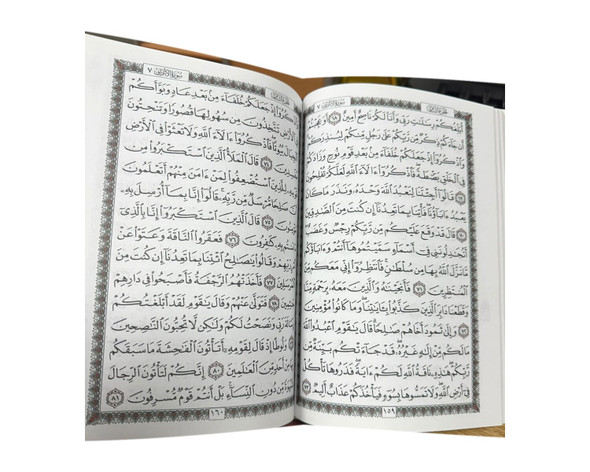 سُورَةُ الأَعْرَافِ ٧
أُبَلِّغُكُمْ رِسَٰلَٰتِ رَبِّي وَأَنَا۠ لَكُمْ نَاصِحٌ أَمِينٌ ٦٨ أَوَعَجِبْتُمْ
جَآءَكُمْ ذِكْرٌ مِّن رَّبِّكُمْ عَلَىٰ رَجُلٍ مِّنكُمْ لِيُنذِرَكُمْ
وَٱذْكُرُوٓا۟ إِذْ جَعَلَكُمْ خُلَفَآءَ مِنۢ بَعْدِ قَوْمِ نُوحٍ وَزَادَكُمْ
فِي ٱلْخَلْقِ بَصْۜطَةً فَٱذْكُرُوٓا۟ ءَالَآءَ ٱللَّهِ لَعَلَّكُمْ تُفْلِحُونَ
٦٩ قَالُوٓا۟ أَجِئْتَنَا لِنَعْبُدَ ٱللَّهَ وَحْدَهُۥ وَنَذَرَ مَا كَانَ
يَعْبُدُ ءَابَآؤُنَا فَأْتِنَا بِمَا تَعِدُنَآ إِن كُنتَ مِنَ ٱلصَّٰدِقِينَ
٧٠ قَالَ قَدْ وَقَعَ عَلَيْكُم مِّن رَّبِّكُمْ رِجْسٌ وَغَضَبٌ
أَتُجَٰدِلُونَنِي فِيٓ أَسْمَآءٍ سَمَّيْتُمُوهَآ أَنتُمْ وَءَابَآؤُكُم
مَّا نَزَّلَ ٱللَّهُ بِهَا مِن سُلْطَٰنٍ فَٱنتَظِرُوٓا۟ إِنِّي مَعَكُم مِّنَ
ٱلْمُنتَظِرِينَ ٧١ فَأَنجَيْنَٰهُ وَٱلَّذِينَ مَعَهُۥ بِرَحْمَةٍ مِّنَّا
وَقَطَعْنَا دَابِرَ ٱلَّذِينَ كَذَّبُوا۟ بِـَٔايَٰتِنَا وَمَا كَانُوا۟ مُؤْمِنِينَ
٧٢ وَإِلَىٰ ثَمُودَ أَخَاهُمْ صَٰلِحًا قَالَ يَٰقَوْمِ ٱعْبُدُوا۟ ٱللَّهَ
مَا لَكُم مِّنْ إِلَٰهٍ غَيْرُهُۥ قَدْ جَآءَتْكُم بَيِّنَةٌ مِّن
رَّبِّكُمْ هَٰذِهِۦ نَاقَةُ ٱللَّهِ لَكُمْ ءَايَةً فَذَرُوهَا تَأْكُلْ
فِيٓ أَرْضِ ٱللَّهِ وَلَا تَمَسُّوهَا بِسُوٓءٍ فَيَأْخُذَكُمْ عَذَابٌ أَلِيمٌ ٧٣
١٥٩
سُورَةُ الأَعْرَافِ ٧
إِذْ جَعَلَكُمْ خُلَفَآءَ مِنۢ بَعْدِ عَادٍ وَبَوَّأَكُمْ
ٱلْأَرْضِ تَتَّخِذُونَ مِن سُهُولِهَا قُصُورًا وَتَنْحِتُونَ
بُيُوتًا فَٱذْكُرُوٓا۟ ءَالَآءَ ٱللَّهِ وَلَا تَعْثَوْا۟ فِي ٱلْأَرْضِ
٧٤ قَالَ ٱلْمَلَأُ ٱلَّذِينَ ٱسْتَكْبَرُوا۟ مِن
لِلَّذِينَ ٱسْتُضْعِفُوا۟ لِمَنْ ءَامَنَ مِنْهُمْ أَتَعْلَمُونَ
صَٰلِحًا مُّرْسَلٌ مِّن رَّبِّهِۦ قَالُوٓا۟ إِنَّا بِمَآ أُرْسِلَ بِهِۦ
٧٥ قَالَ ٱلَّذِينَ ٱسْتَكْبَرُوٓا۟ إِنَّا بِٱلَّذِيٓ
بِهِۦ كَٰفِرُونَ ٧٦ فَعَقَرُوا۟ ٱلنَّاقَةَ وَعَتَوْا۟ عَنْ
رَبِّهِمْ وَقَالُوا۟ يَٰصَٰلِحُ ٱئْتِنَا بِمَا تَعِدُنَآ إِن كُنتَ مِنَ
٧٧ فَأَخَذَتْهُمُ ٱلرَّجْفَةُ فَأَصْبَحُوا۟ فِي دَارِهِمْ
٧٨ فَتَوَلَّىٰ عَنْهُمْ وَقَالَ يَٰقَوْمِ لَقَدْ أَبْلَغْتُكُمْ
رَبِّي وَنَصَحْتُ لَكُمْ وَلَٰكِن لَّا تُحِبُّونَ ٱلنَّٰصِحِينَ
وَلُوطًا إِذْ قَالَ لِقَوْمِهِۦٓ أَتَأْتُونَ ٱلْفَٰحِشَةَ مَا سَبَقَكُم
مِنْ أَحَدٍ مِّنَ ٱلْعَٰلَمِينَ ٨٠ إِنَّكُمْ لَتَأْتُونَ ٱلرِّجَالَ
مِّن دُونِ ٱلنِّسَآءِ بَلْ أَنتُمْ قَوْمٌ مُّسْرِفُونَ ٨١
١٦٠